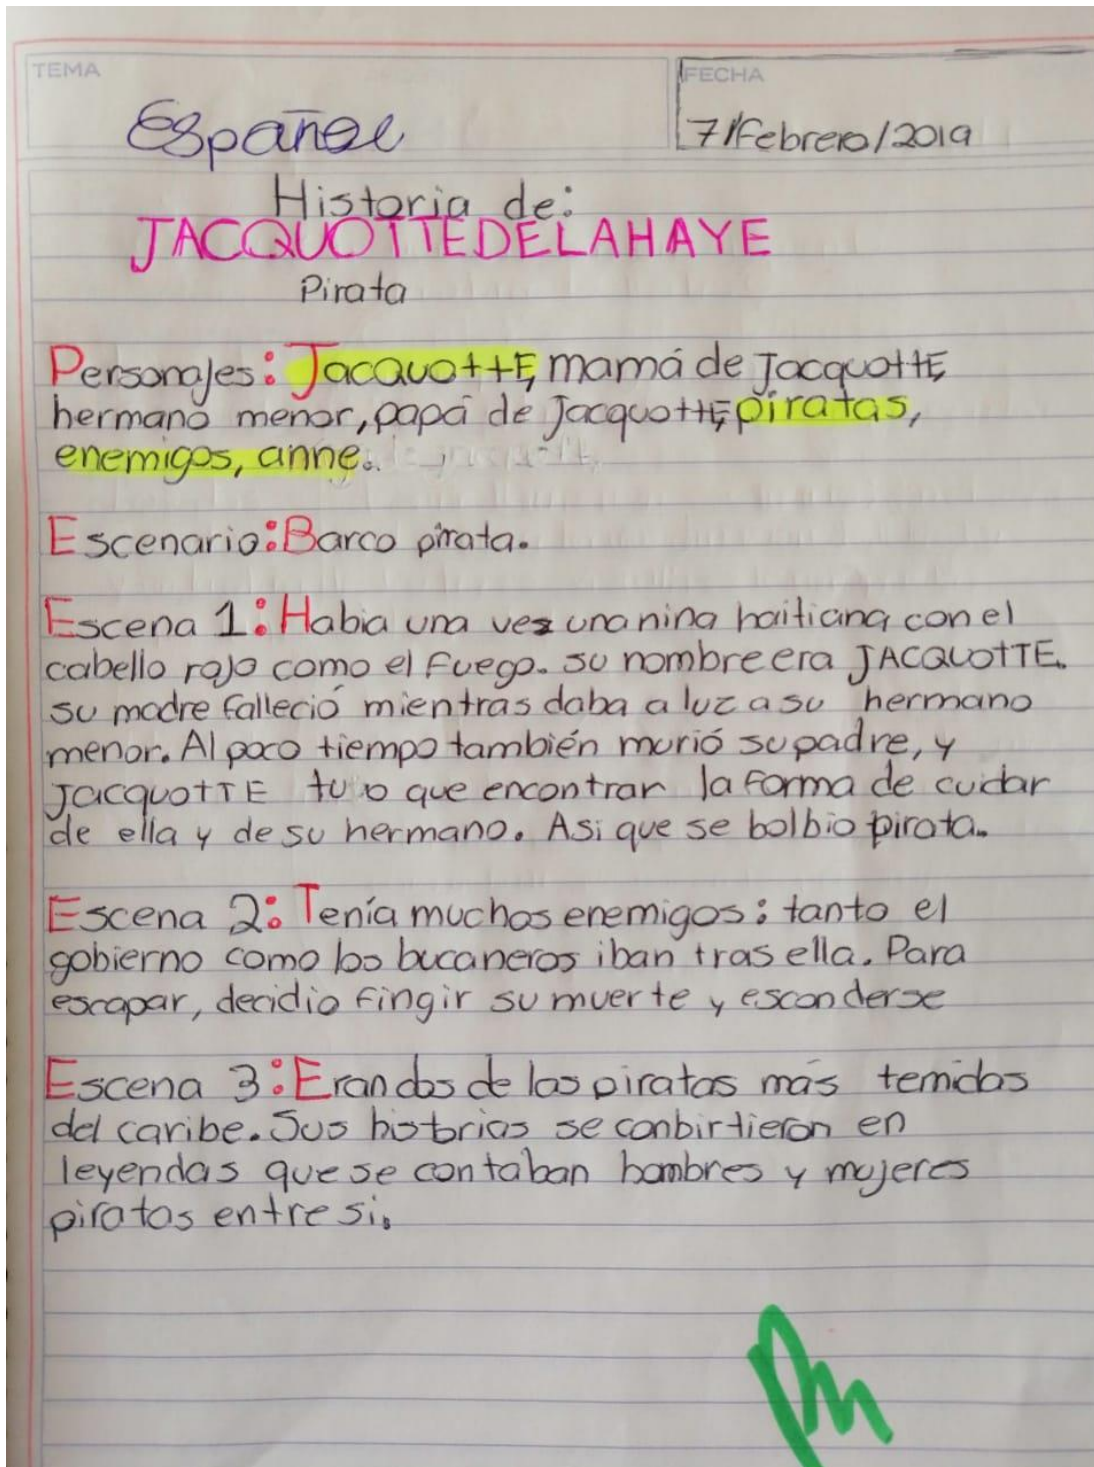 TEMA
FECHA
Español
7/Febrero/2019
Historia de:
JACQUOTTEDELAHAYE
Pirata
Personajes: JacquottE, mamá de JacquottE,
hermano menor, papá de JacquottE, piratas,
enemigos, anne.
Escenario: Barco pirata.
Escena 1: Habia una vez una nina haitiana con el
cabello rojo como el fuego. su nombre era JACQUOTTE.
su madre falleció mientras daba a luz a su hermano
menor. Al poco tiempo también murió su padre, y
JacquoTTE tuvo que encontrar la forma de cudar
de ella y de su hermano. Asi que se bolbio pirata.
Escena 2: Tenía muchos enemigos: tanto el
gobierno como los bucaneros iban tras ella. Para
escapar, decidio fingir su muerte y esconderse
Escena 3: Eran dos de los piratas más temidos
del caribe. Sus historias se conbirtieron en
leyendas que se contaban hombres y mujeres
piratas entre si.